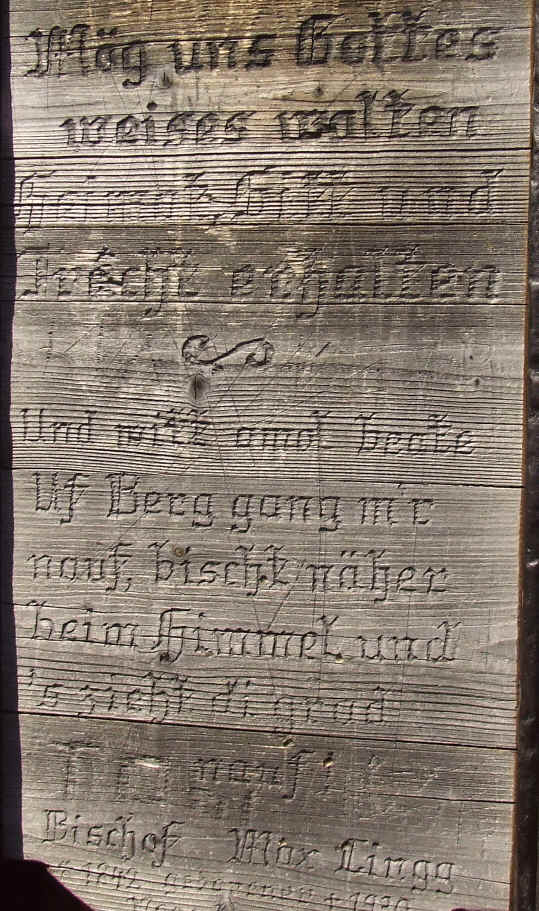 Mög uns Gottes
weises walten
Heimat, Sitt und
Trächt erhalten
Und witt amol beate
Uf Berg gang m'r
nauf, bischt näher
beim Himmel und
's zieht di grad
nauf!
Bischof Max v. Lingg
1842 geborenen † 1930